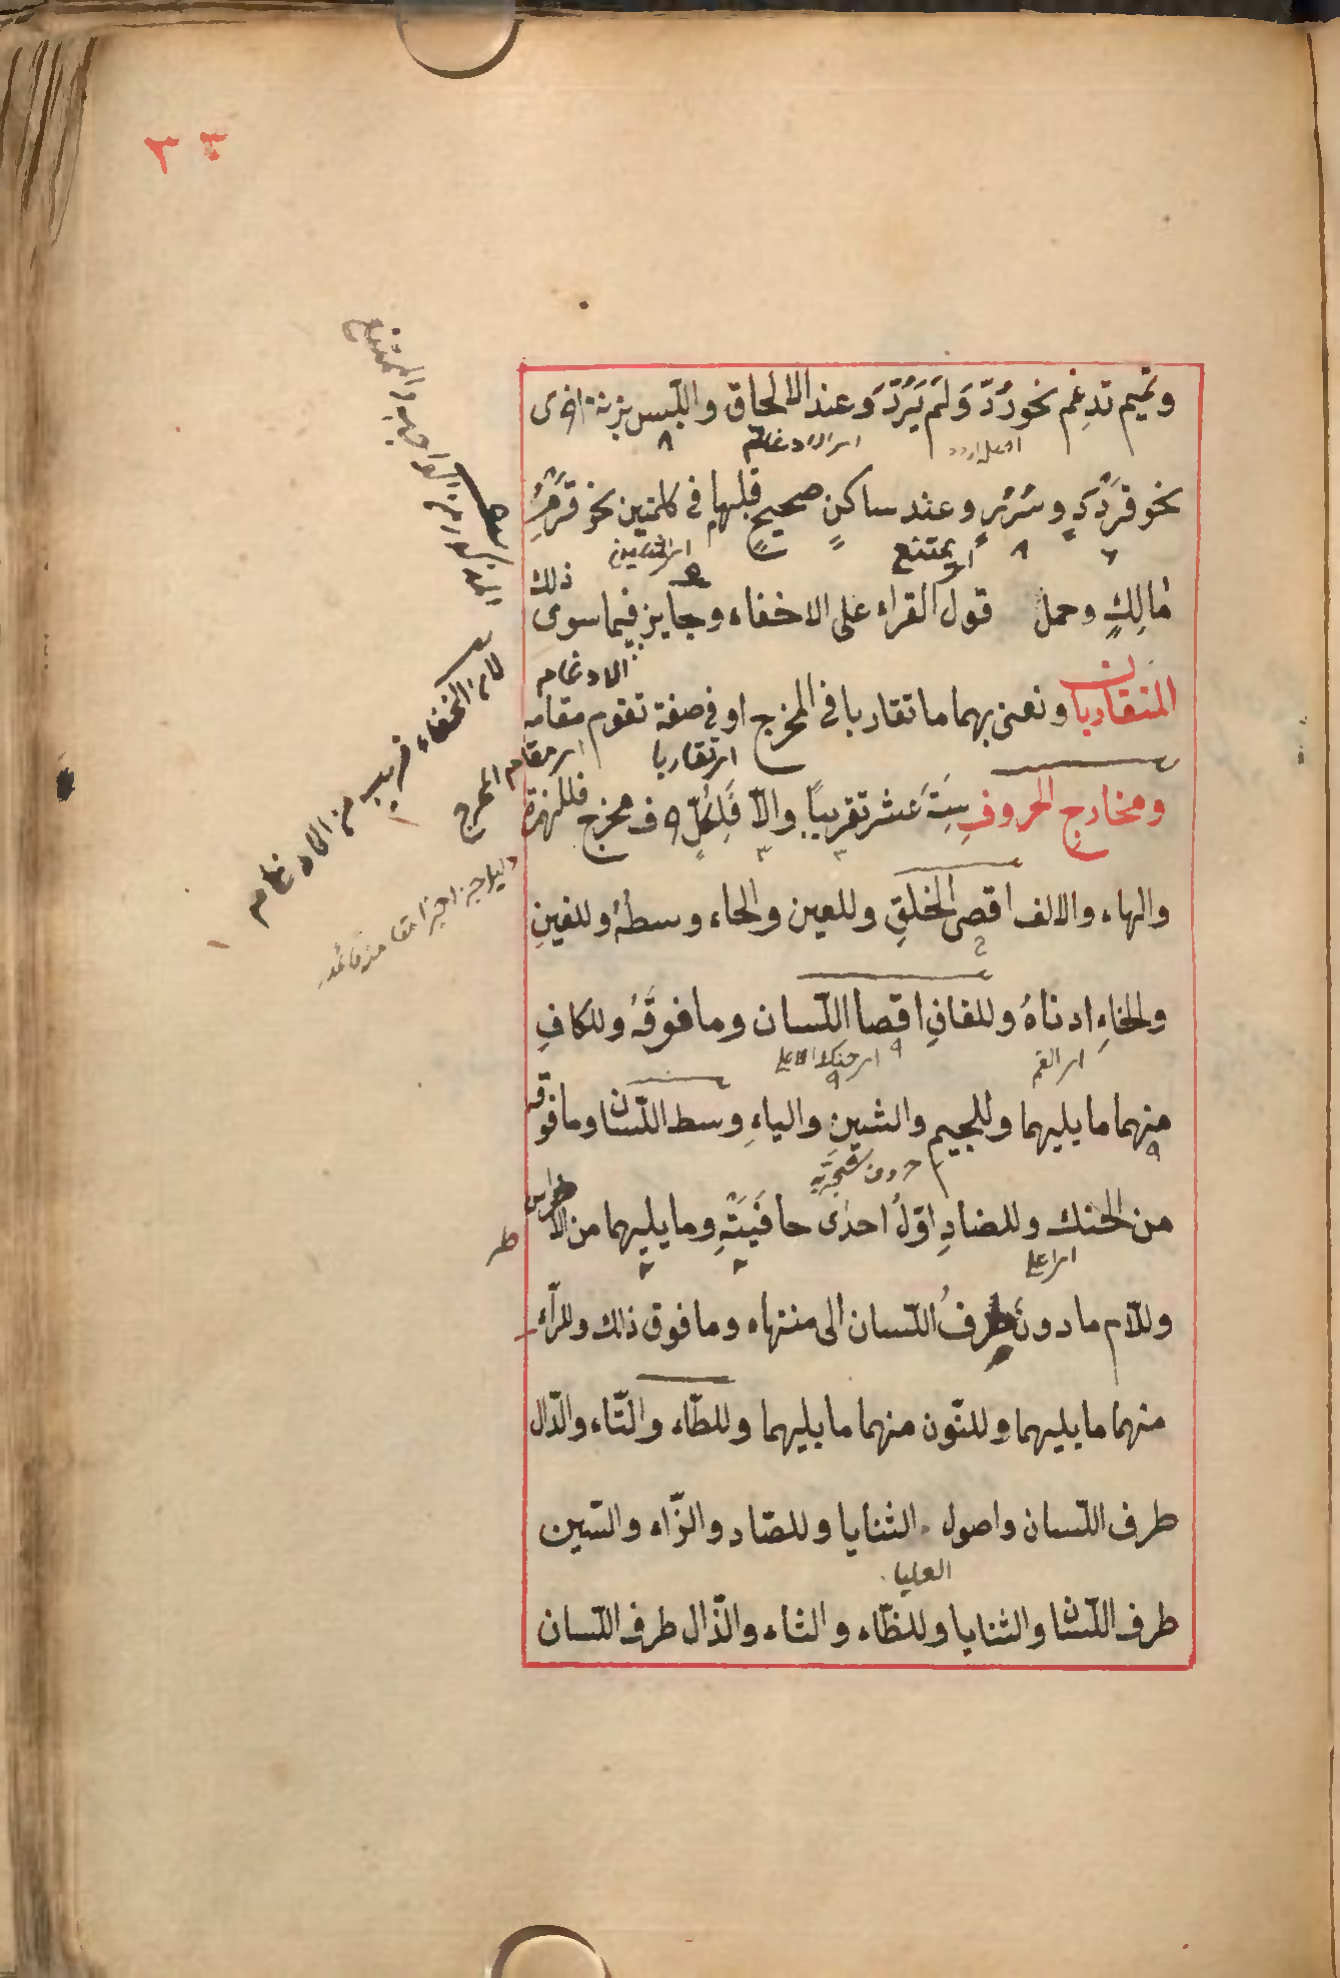 ٣٣
وتميم تدغم نحو رُدَّ وَلَم يَرُدَّ وعند الالحاق واللّبس بزنة اخرى
نحو قَرْدَدٍ وسُرُرٍ وعند ساكنٍ صحيحٍ قبلهما فى كلمتين نحو قَرْمُ
يمتنع
مالِكٍ وحمل قول القراء على الاخفاء وجايز فيما سوى ذلك
الادغام
المتقاربان ونعنى بهما ما تقاربا فى المخرج او فى صفة تقوم مقامه
اى تقاربا
اى مقام المخرج
ومخارج الحروفِ سِتَّةَ عشر تقريبًا والّا فَلِكُلٍّ مخرج فللهمزة
والهاء والالف اقصى الحلقِ وللعين والحاء وسطهُ وللغينِ
والخاءِ ادناهُ وللقافِ اقصا اللّسان وما فوقَهُ وللكافِ
منهما ما يليهما وللجيم والشين والياءِ وسط اللّسان وما فوقه
من الحنك وللضادِ اوّلُ احدى حافَيَتَهِ وما يليهما من الاضراس
وللّام ما دون طرفُ اللّسان الى منتهاه وما فوق ذلك وللرّاءِ
منهما ما يليهما وللنّون منهما ما يليهما وللطّاء والتّاء والدّال
طرف اللّسان واصول الثنايا وللصّاد والزّاء والسّين
العليا
طرف اللّسان والثنايا وللظّاء والثاء والذّال طرف اللّسان
لان الخفاء قريب من الادغام